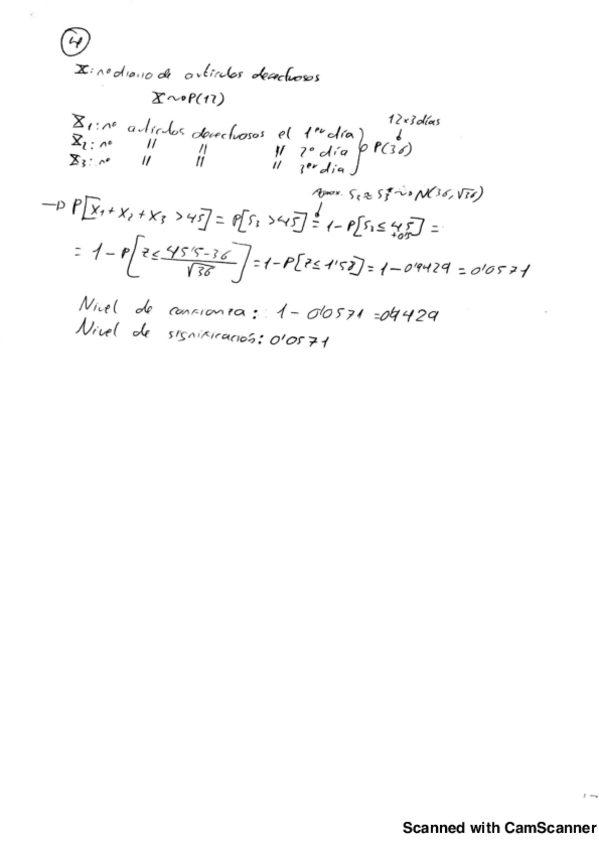 4
X: nº diario de artículos defectuosos
X ~ P(12)
12x3días
X1: nº artículos defectuosos el 1er día
X2: nº " " " 2º día
P(36)
X3: nº " " " 3er día
Aprox. S3 ≈ S3* ~ N(36, √36)
→ P[X1 + X2 + X3 > 45] = P[S3 > 45] = 1 - P[S3 ≤ 45] =
+0'5
= 1 - P[Z ≤ 45'5-36 / √36] = 1 - P[Z ≤ 1'58] = 1 - 0'9429 = 0'0571
Nivel de confianza: 1 - 0'0571 = 0'9429
Nivel de significación: 0'0571
Scanned with CamScanner